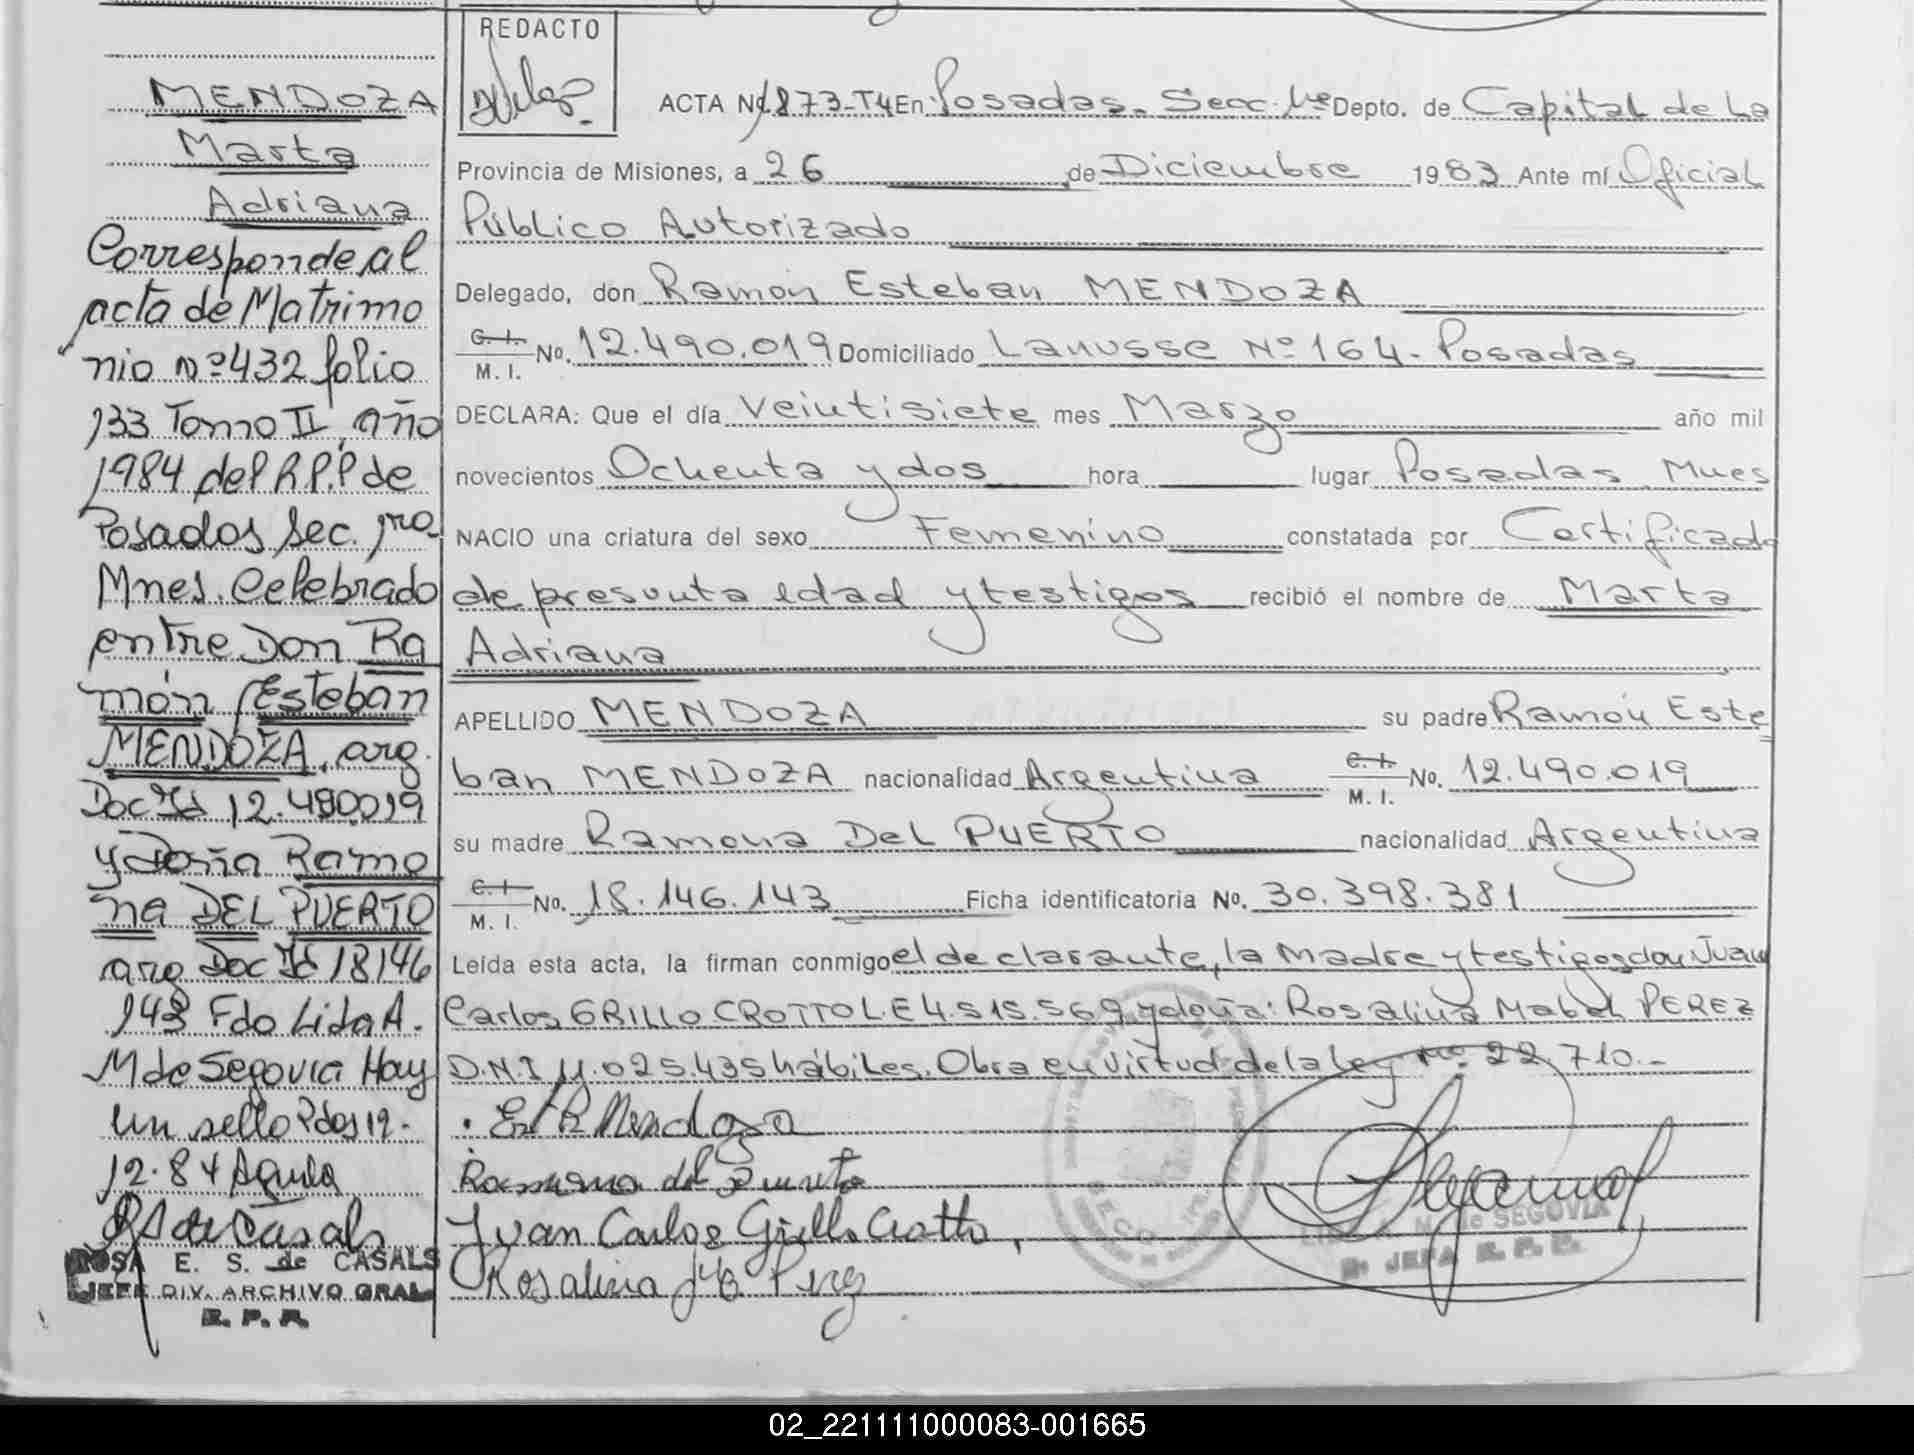 MENDOZA
Marta
Adriana
Corresponde al
acta de Matrimo
nio nº 432 folio
133 Tomo II, año
1984 del R.P.P de
Posadas Sec. 1ra
Mnes. Celebrado
entre Don Ra
món Esteban
MENDOZA, arg.
Doc Id 12.490019
y Doña Ramo
na DEL PUERTO
arg Doc Id 18146
143 Fdo Lida A.
M de Segovia Hay
un sello Pdas 19-
12-84
RS de Casals
ROSA E. S. de CASALS
JEFE DIV. ARCHIVO GRAL
R. P. P.
REDACTO
ACTA Nº 1873-T4 En Posadas. Secc. 1ra Depto. de Capital de La
Provincia de Misiones, a 26 de Diciembre 1983 Ante mí Oficial
Público Autorizado
Delegado, don Ramón Esteban MENDOZA
C. I. M. I. No. 12.490.019 Domiciliado Lanusse Nº 164- Posadas
DECLARA: Que el día Veintisiete mes Marzo año mil
novecientos Ochenta y dos hora lugar Posadas Mnes
NACIO una criatura del sexo Femenino constatada por Certificado
de presunta edad y testigos recibió el nombre de Marta
Adriana
APELLIDO MENDOZA su padre Ramón Este
ban MENDOZA nacionalidad Argentina C. I. M. I. No. 12.490.019
su madre Ramona Del PUERTO nacionalidad Argentina
C. I. M. I. No. 18.146.143 Ficha identificatoria No. 30.398.381
Leída esta acta, la firman conmigo el declarante, la Madre y testigos don Juan
Carlos GRILLO CROTTO LE 4.515.569 y doña: Rosalina Mabel PEREZ
D.N.I 11.025.435 hábiles. Obra en virtud de la ley nº 22.710.-
Est R Mendoza
Ramona del Puerto
Juan Carlos Grillo Crotto
Rosalina M. Perez
M. de SEGOVIA
JEFA R. P. P.
02_221111000083-001665